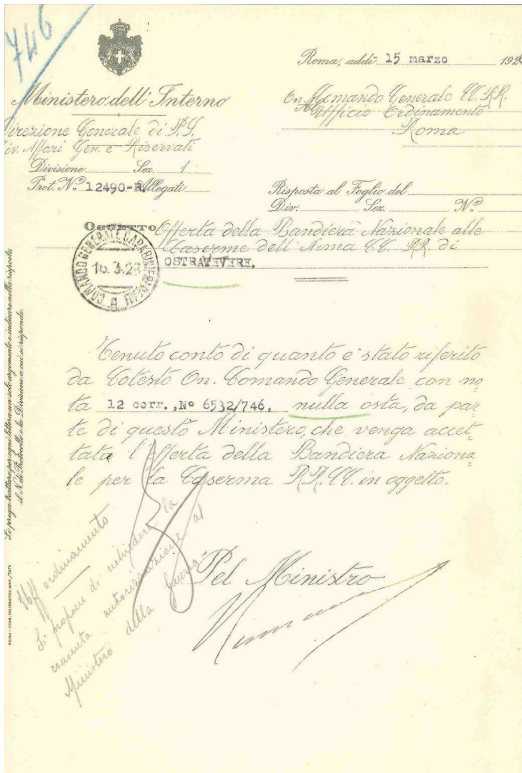 746
Roma, addì 15 marzo 192
Ministero dell'Interno
Direzione Generale di P.S.
Div. Affari Gen. e Riservati
Divisione Sez. 1
Prot. N.º 12490-R Allegati
On. Comando Generale CC. RR.
Ufficio Ordinamento
Roma
Risposta al Foglio del
Div. Sez. N.º
OGGETTO Offerta della Bandiera Nazionale alle
Caserme dell'Arma CC. RR. di
COMANDO GENERALE CARABINIERI REALI
16.3.28
Tenuto conto di quanto è stato riferito
da Cotesto On. Comando Generale con no=
ta 12 corr., Nº 6532/746, nulla osta, da par=
te di questo Ministero, che venga accet=
tata l'Offerta della Bandiera Naziona=
le per la Caserma RR. CC. in oggetto.
Pel Ministro
Uff ordinamento
Si propone di la
consueta autorizzazione al
Ministero della Guerra
Si prega trattare per ogni lettera un solo argomento e indicare nella risposta
il N. di Protocollo e la Divisione a cui si risponde.